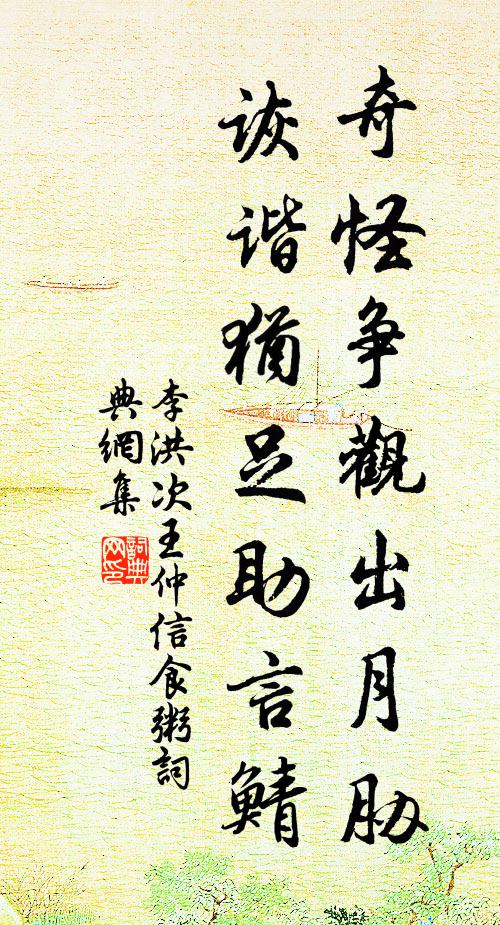 奇怪争觀出月胁
诙谐猶足助言鯖
李洪次王仲信食粥詞
典網集
詞典网印